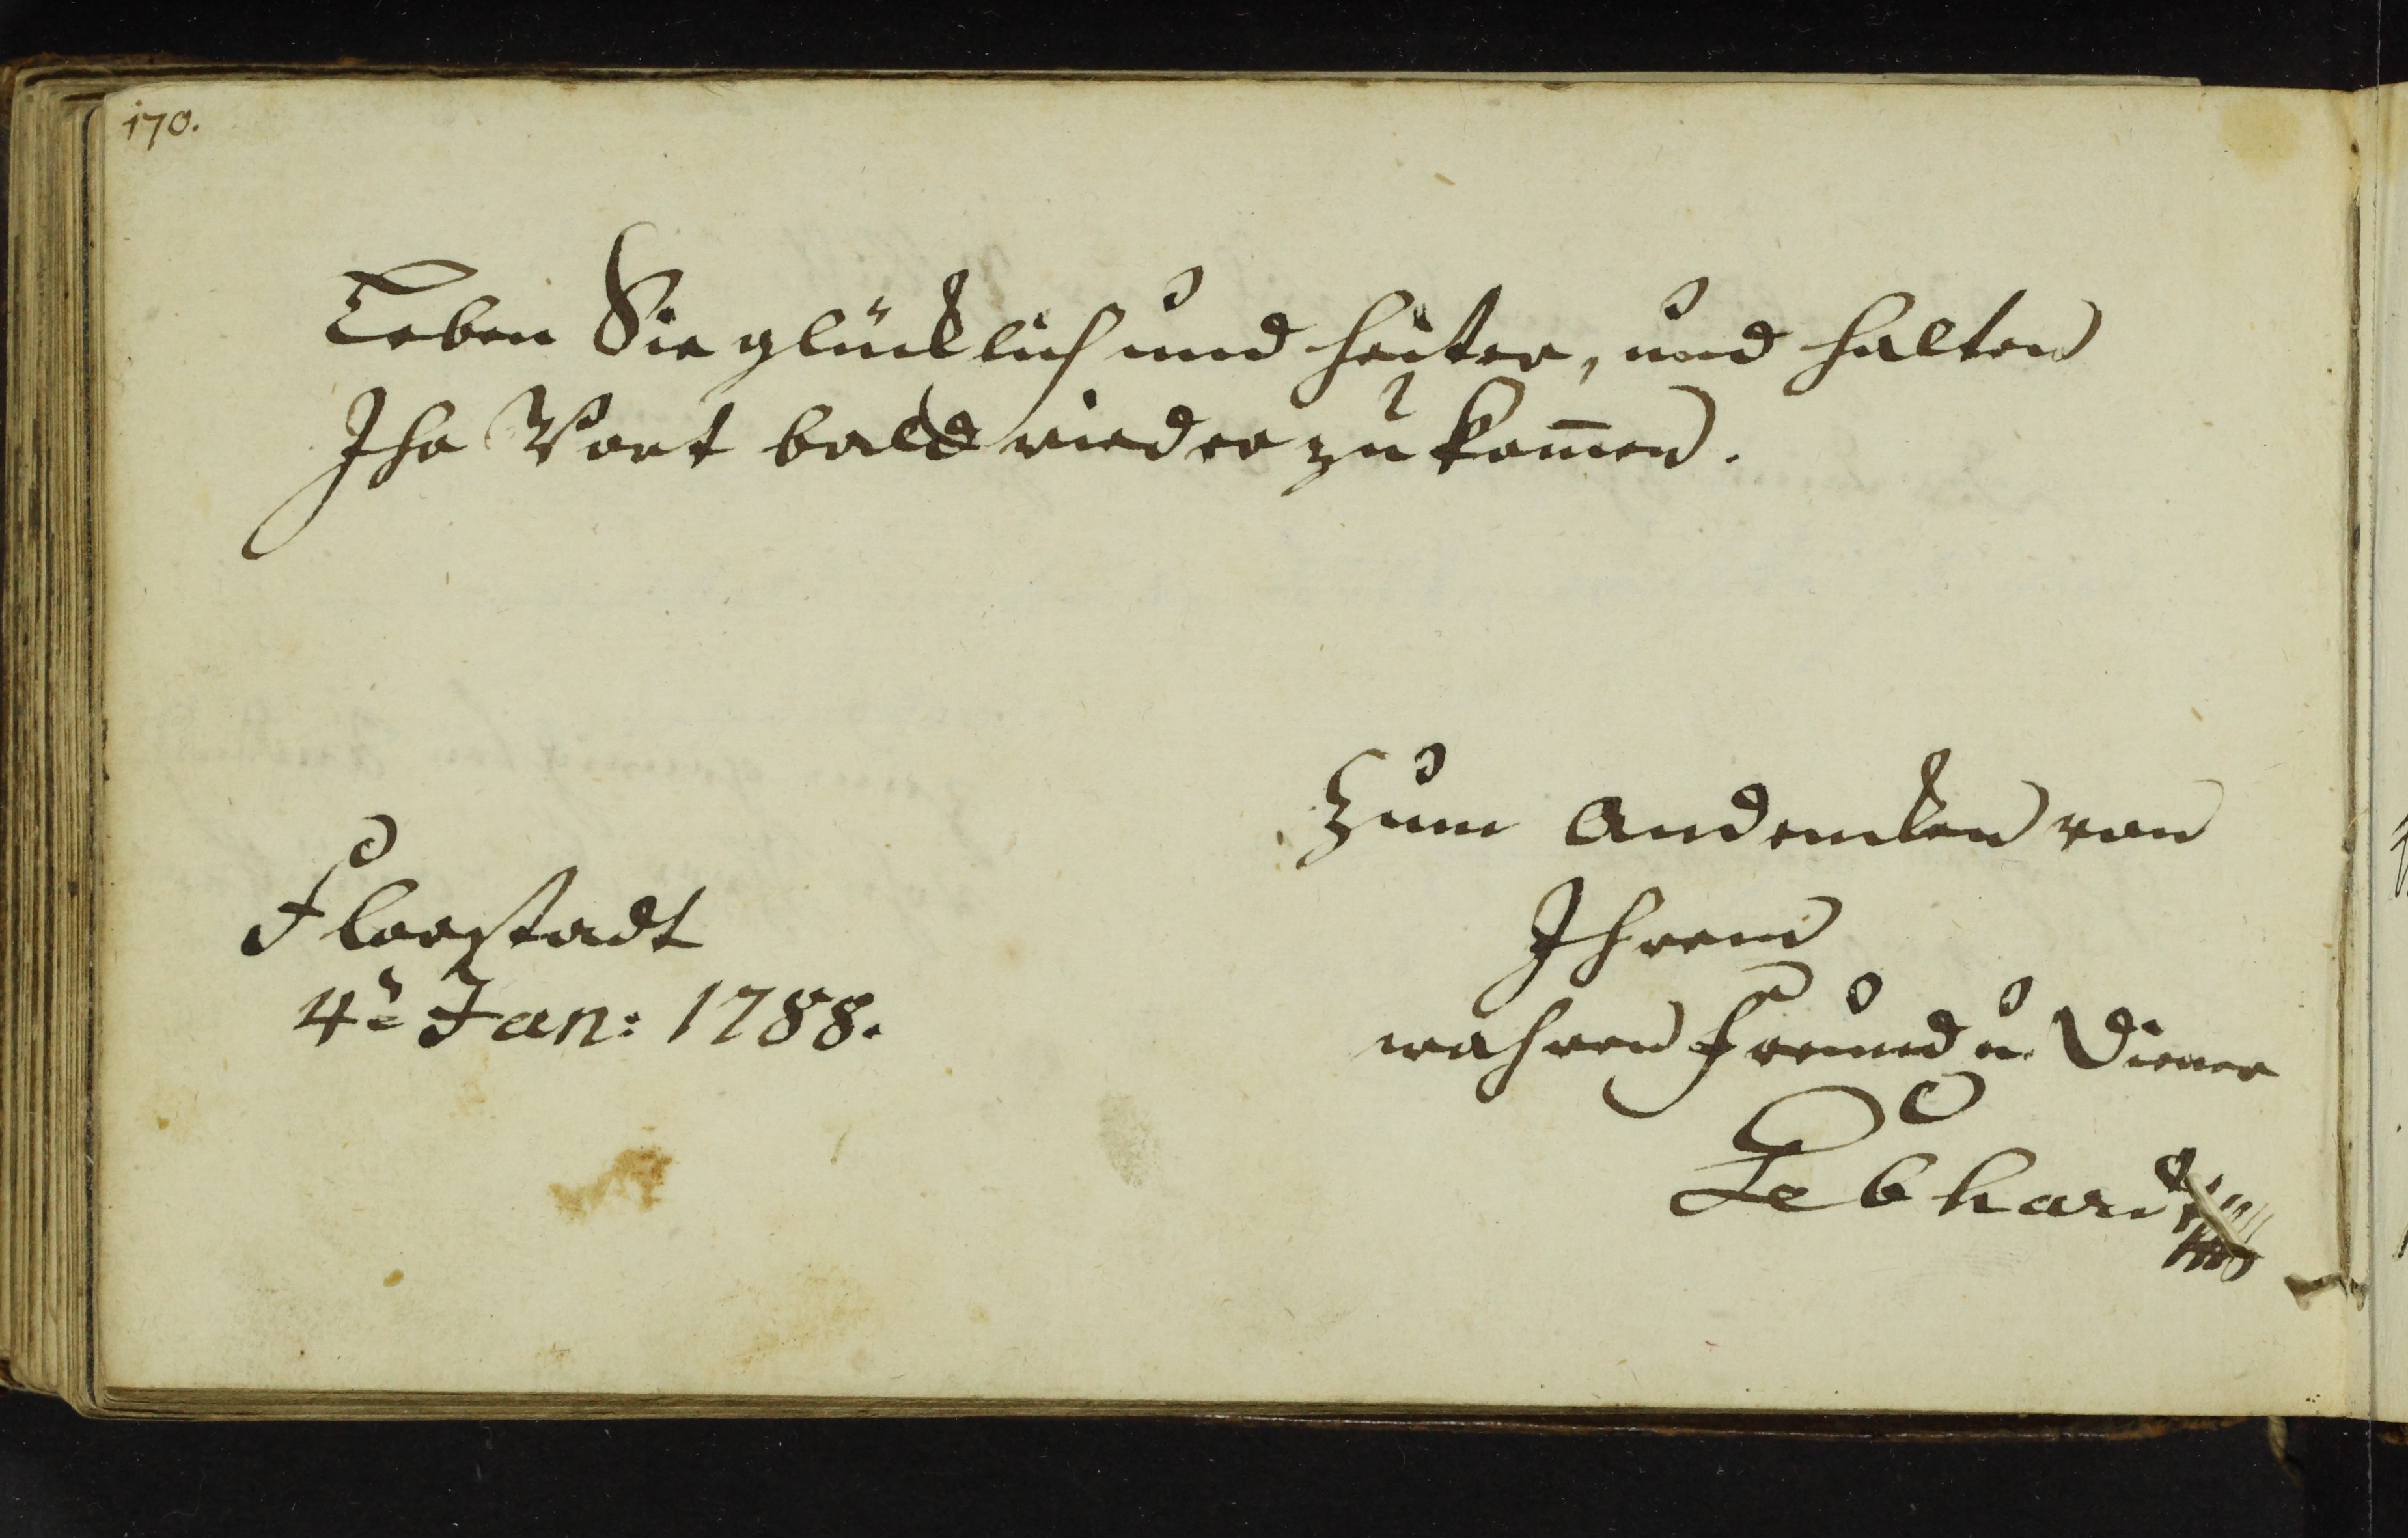 170.
Leben Sie glücklich und heiter, und halten
Ihr Wort bald wieder zu kom̄en.
Zum Andencken von
Ihrem
wahren Freund u. Diener
Florstadt
4te Jan: 1788.